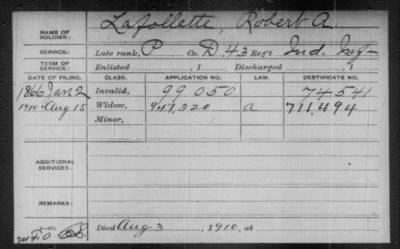 NAME OF SOLDIER: Lafollette, Robert A.
SERVICE: Late rank, P Co. D, 43 Reg't Ind. Inf
TERM OF SERVICE: Enlisted , 1 Discharged , 1
DATE OF FILING. CLASS. APPLICATION NO. LAW. CERTIFICATE NO.
1866 Jan 2 Invalid, 99 050 74541
1910 Aug 15 Widow, 947,320 a 711,494
Minor,
ADDITIONAL SERVICES:
REMARKS:
Died Aug 3, 1910, at